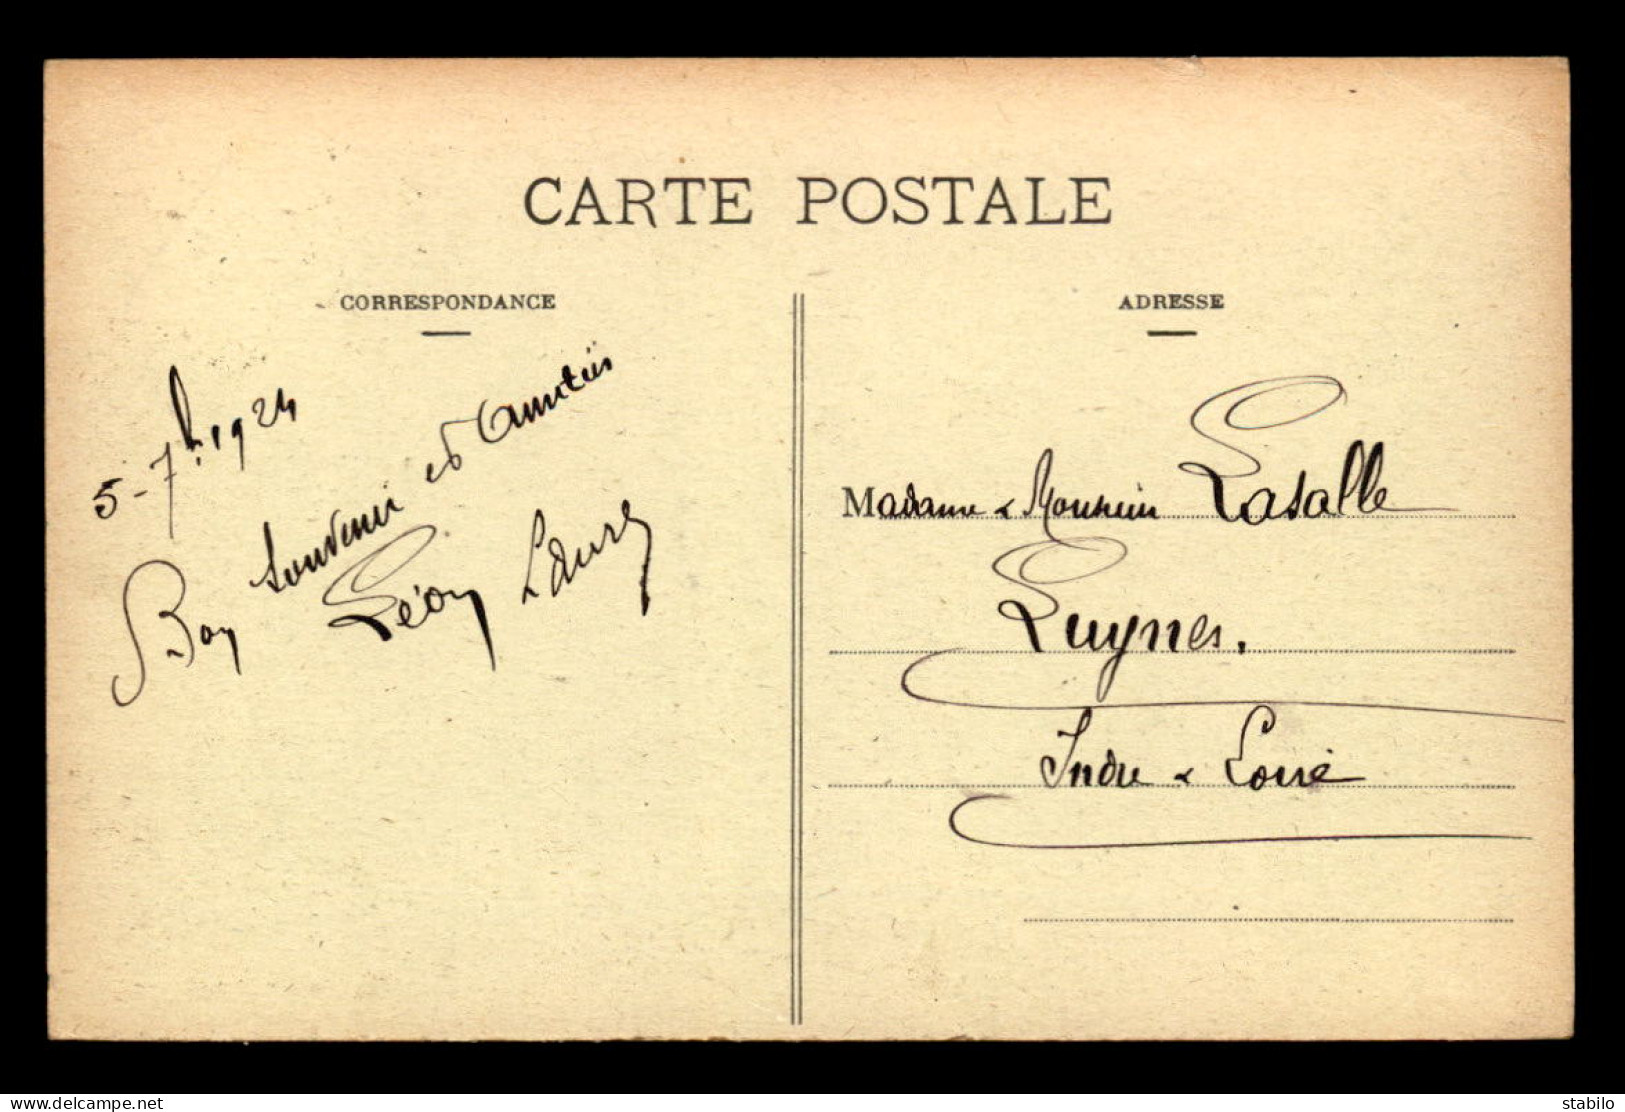 CARTE POSTALE
CORRESPONDANCE
5-7bre 1924
Bon souvenir et Amitiés
Léon Laurs
ADRESSE
Madame & Monsieur Lasalle
Luynes.
Indre & Loire
www.delcampe.net
stabilo